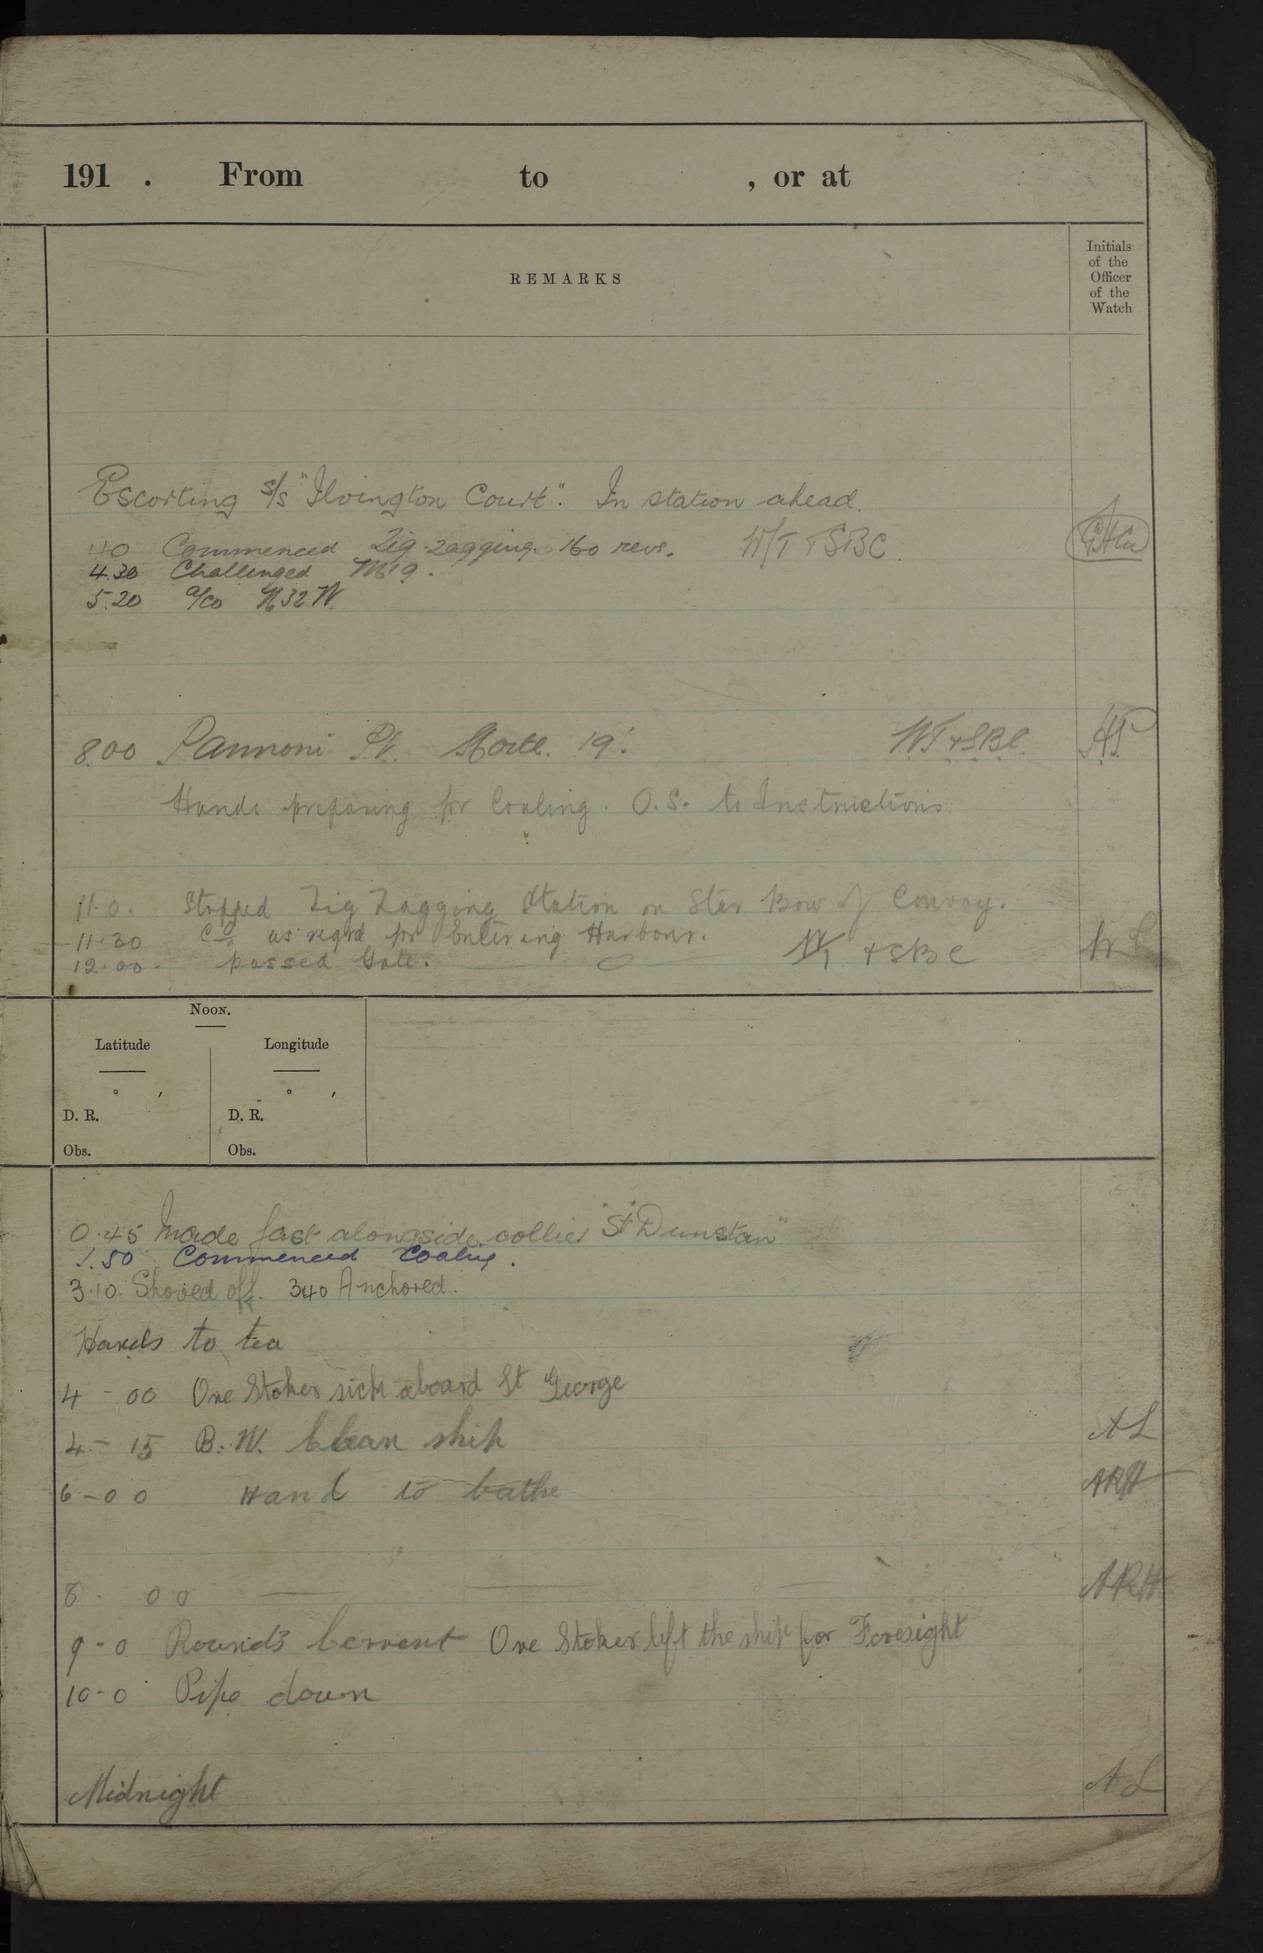 191 . From to , or at
REMARKS
Initials
of the
Officer
of the
Watch
Escorting S/s "Ilvington Court". In station ahead.
4.0 Commenced Zig-zagging. 160 revs. W/T + SBC.
4.30 Challenged M19.
5.20 a/co N32W.
8.00 Pannoni Pt. 19'. WT + SBC. HP
Hands preparing for Coaling. O.S. to Instructions
11.0. Stopped Zig Zagging Station on Star Bow of Convoy.
11.30 Co as reqrd for Entering Harbour.
12.00. passed Gate. W/T + SBC
NOON.
Latitude Longitude
° ′ ° ′
D. R. D. R.
Obs. Obs.
0.45 Made fast alongside collier "St Dunstan"
1.50 Commenced Coaling.
3.10. Shoved off. 340 Anchored.
Hands to tea
4 - 00 One Stoker sick aboard St George
4 - 15 B. W. Clean ship AL
6 - 00 Hand to bathe ARH
8 - 00 ARH
9 - 0 Rounds Correct One Stoker left the ship for Foresight
10 - 0 Pipe down
Midnight AL